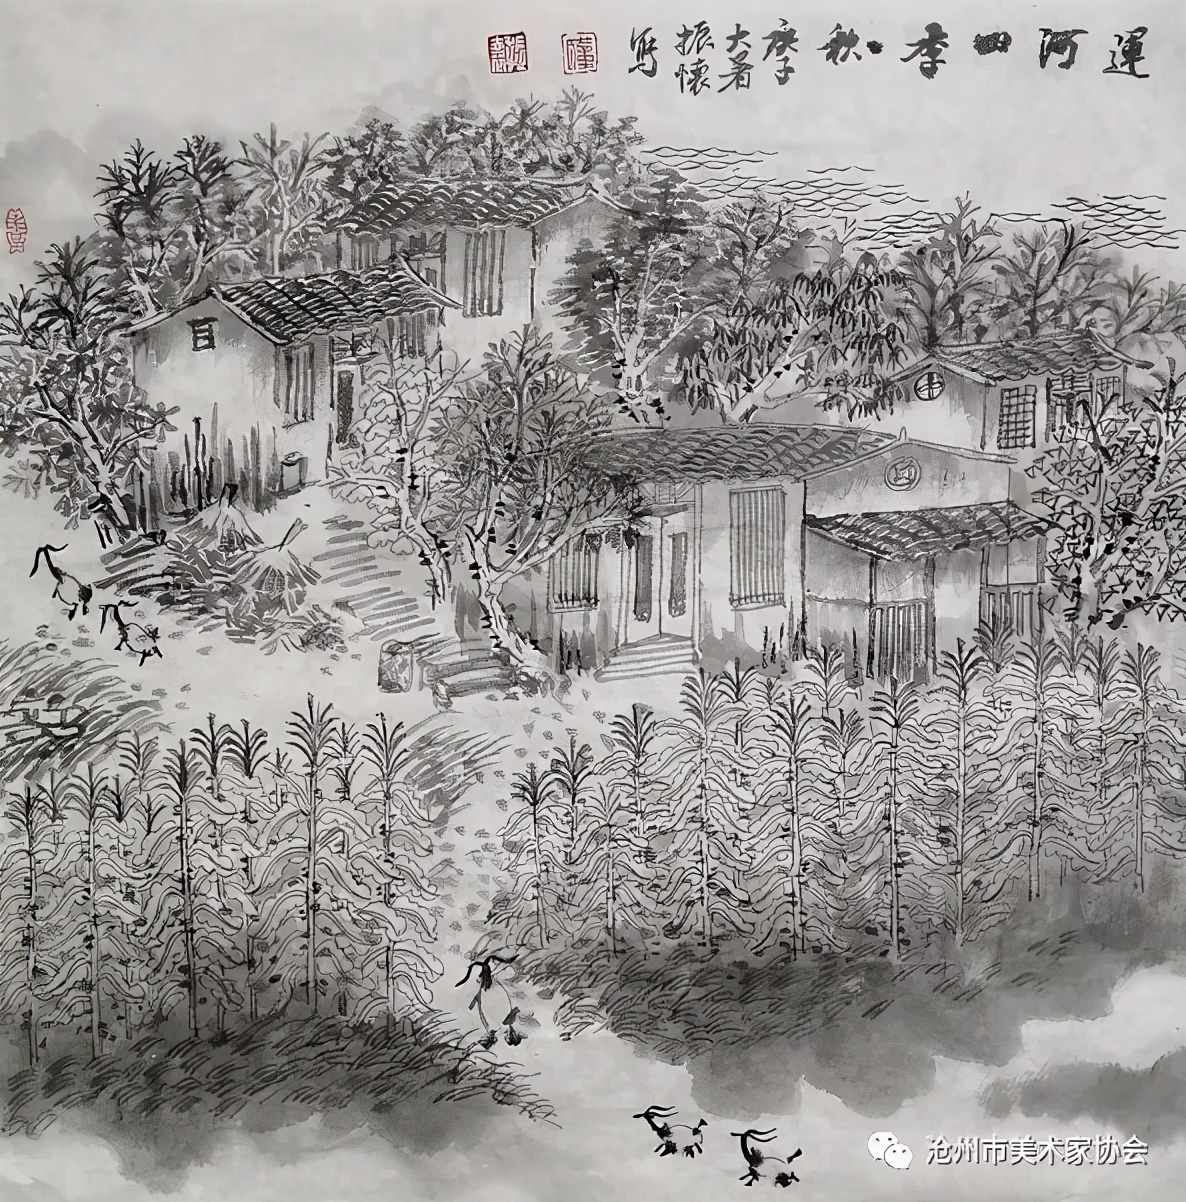 運河四季·秋
庚子
大暑
振懷
寫
沧州市美术家协会